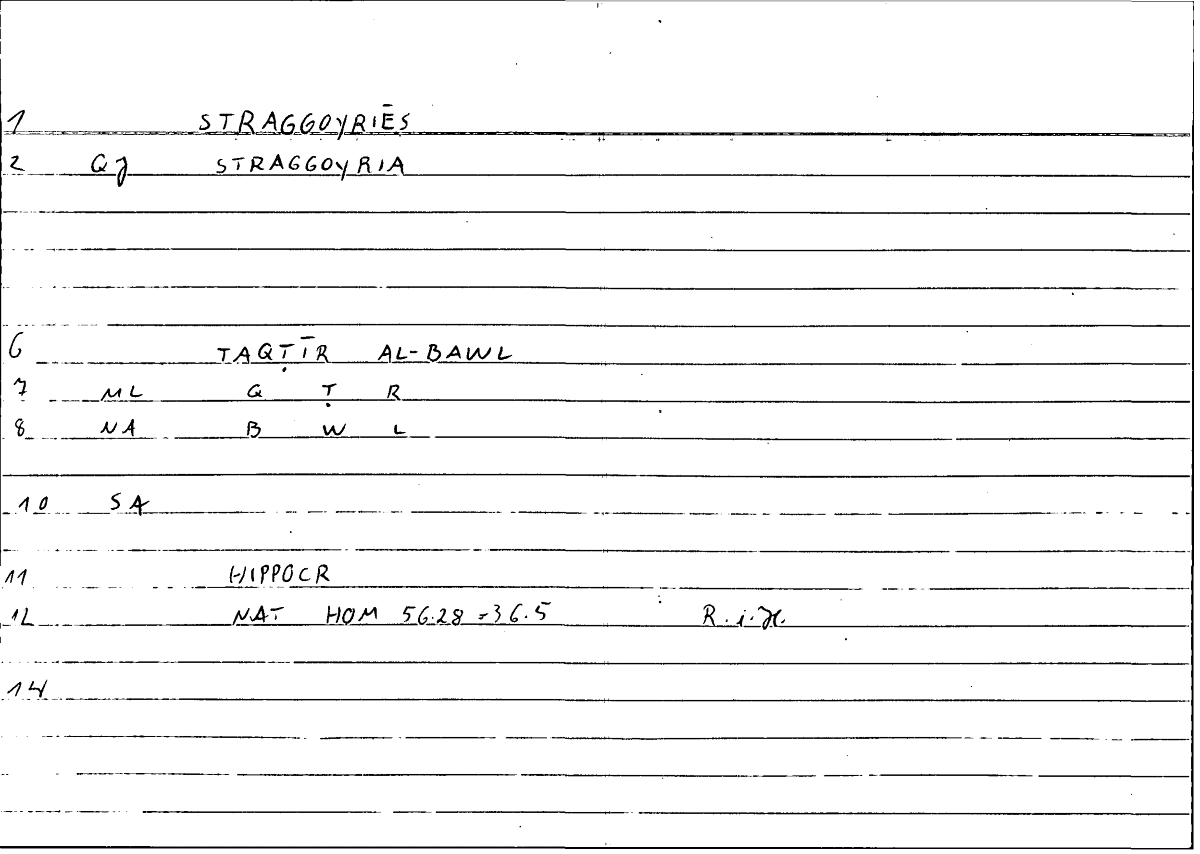 1 STRAGGOYRIĒS
2 QJ STRAGGOYRIA
6 TAQṬĪR AL-BAWL
7 ML Q Ṭ R
8 NA B W L
10 SA
11 HIPPOCR
12 NAT HOM 56.28 = 36.5
14